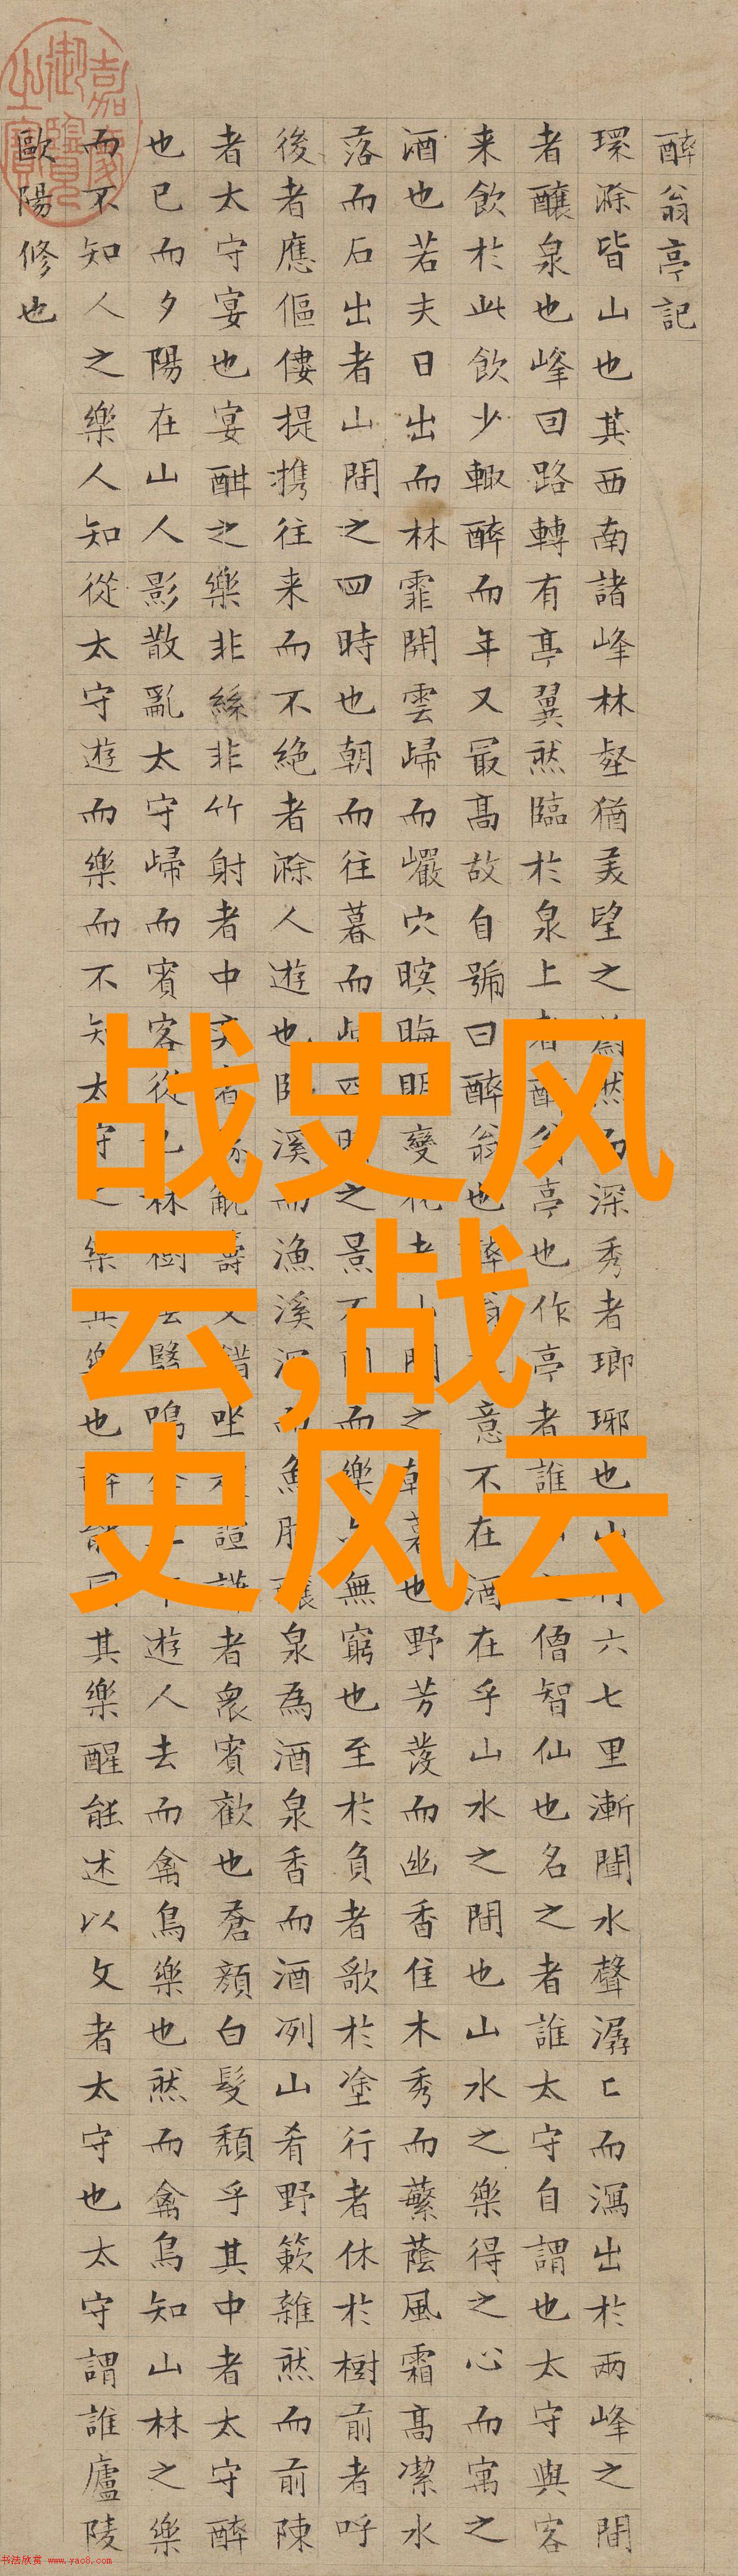 醉翁亭記
環滁皆山也其西南諸峰林壑猶美望之然而深秀者瑯琊也山六七里漸聞水聲潺匕而瀉出於兩峰之間
者釀泉也峰回路轉有亭翼然臨於泉上者醉翁亭也作亭者誰僧智仙也名之者誰太守自謂也太守與客
来飲於此飲少輙醉而年又最高故自號曰醉翁也醉意不在酒在乎山水之間也山水之樂得之心而寓之
酒也若夫日出而林霏開雲歸而巖穴暝晦明變化間之朝暮也野芳發而幽香佳木秀而蘩蔭風霜高潔水
落而石出者山間之四時也朝而往暮而歸四時之景不同而樂無窮也至於負者歌於塗行者休於樹前者呼
後者應傴僂提携往来而不絕者滁人遊也臨溪而漁溪深而魚肥釀泉為酒泉香而酒冽山肴野簌雜然而前陳
者太守宴也宴酣之樂非絲非竹射者中奕者觥籌交錯坐諠譁者衆賓歡也蒼顔白髮頹乎其中者太守醉
也已而夕陽在山人影散亂太守歸而賓客從也林樹翳鳴遊人去而禽鳥樂也然而禽鳥知山林之樂
而不知人之樂人知從太守遊而樂而不知太守之樂其樂也醉能同其樂醒能述以文者太守也太守謂誰廬陵
歐陽修也
嘉慶御覽之寶
战史风
云,战
史风云
书法欣赏 www.yac8.com